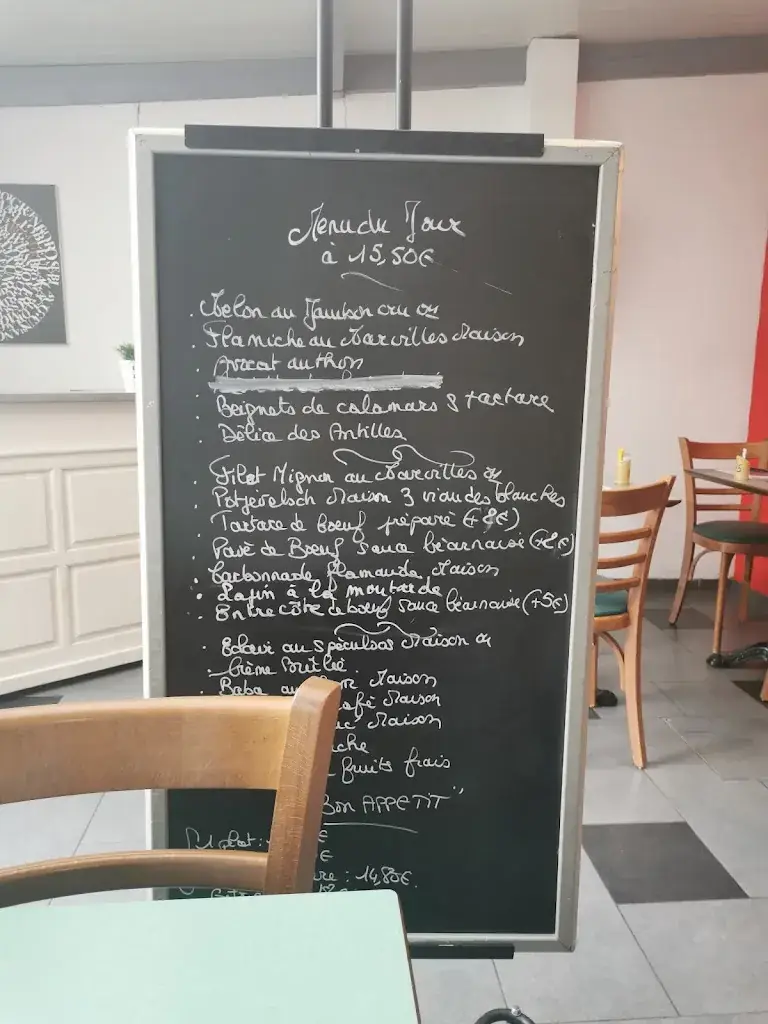 Menu du Jour
à 15,50€
. Melon au Jambon cru ou
. Flamiche au Maroilles Maison
. Avocat au thon
. Beignets de calamars & tartare
. Délice des Antilles
. Filet Mignon au Maroilles ou
. Potjevelsch Maison 3 viandes blanches
. Tartare de boeuf préparé
. Pavé de Boeuf sauce béarnaise
. Carbonnade flamande Maison
. Lapin à la moutarde
. Entrecôte de boeuf sauce béarnaise (+5€)
. Eclair au spéculoos Maison ou
. Crème brûlée
. Baba au Maison
café Maison
Maison
fruits frais
Bon APPETIT"
1 plat :
: 14,80€